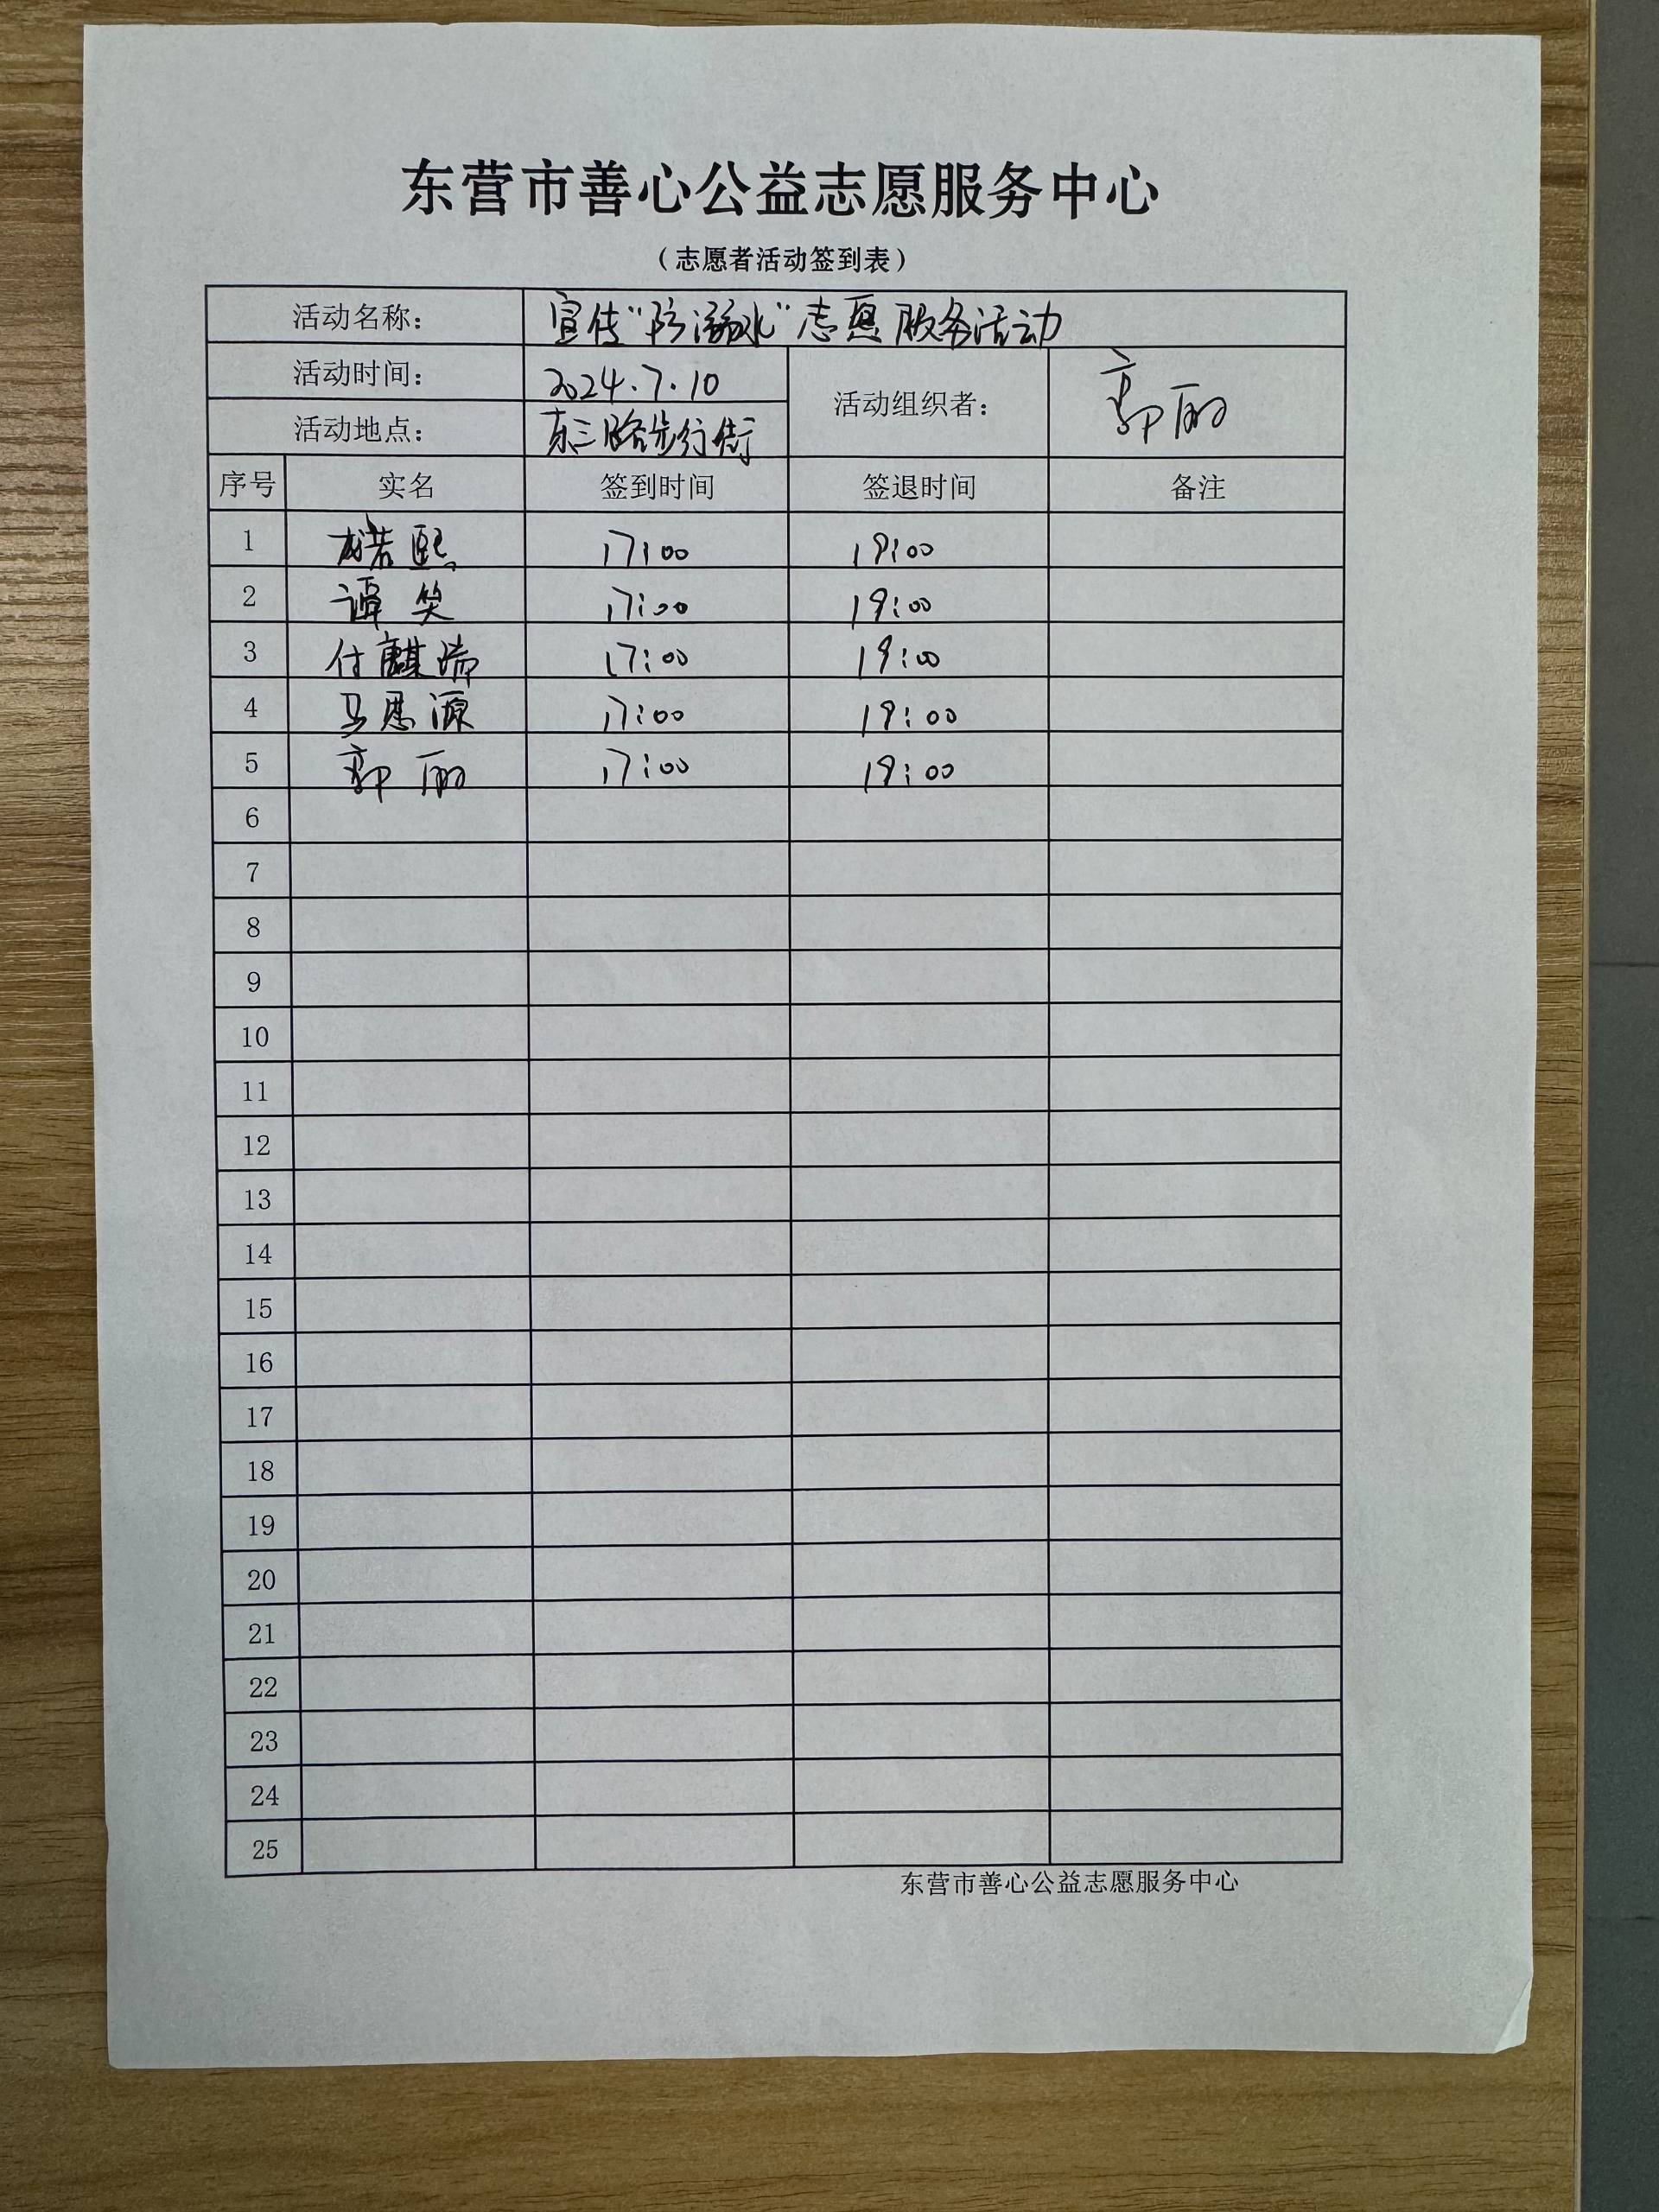 东营市善心公益志愿服务中心
（志愿者活动签到表）
活动名称： 宣传“防溺水”志愿服务活动
活动时间： 2024.7.10 活动组织者： 郭丽
活动地点： 东三路步行街
序号 实名 签到时间 签退时间 备注
1 若熙 17:00 19:00
2 谭笑 17:00 19:00
3 付麒瑞 17:00 19:00
4 马思源 17:00 19:00
5 郭丽 17:00 19:00
6
7
8
9
10
11
12
13
14
15
16
17
18
19
20
21
22
23
24
25
东营市善心公益志愿服务中心